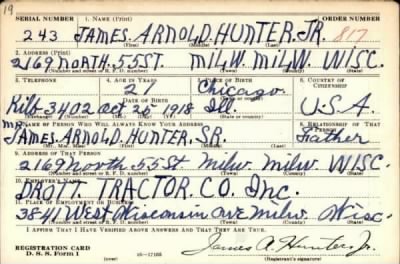 19
SERIAL NUMBER 1. NAME (Print) ORDER NUMBER
243 JAMES. ARNOLD. HUNTER. JR. 817
(First) (Middle) (Last)
2. ADDRESS (Print)
2169 NORTH. 55 ST. MILW. MILW. WISC.
(Number and street or R. F. D. number) (Town) (County) (State)
3. TELEPHONE 4. AGE IN YEARS 5. PLACE OF BIRTH 6. COUNTRY OF CITIZENSHIP
21 Chicago
DATE OF BIRTH
Kilb 3402 Oct 25 1918 Ill. U.S.A.
7. NAME OF PERSON WHO WILL ALWAYS KNOW YOUR ADDRESS 8. RELATIONSHIP OF THAT PERSON
MR JAMES. ARNOLD. HUNTER. SR. Father
(Mr., Mrs., Miss) (First) (Middle) (Last)
9. ADDRESS OF THAT PERSON
2169 North 55 St Milw. Milw. WISC.
(Number and street or R. F. D. number) (Town) (County) (State)
10. EMPLOYER'S NAME
DROTT. TRACTOR. CO. Inc.
11. PLACE OF EMPLOYMENT OR BUSINESS
3841 West Wisconsin Ave Milw. Wisc.
(Number and street or R. F. D. number) (Town) (County) (State)
I AFFIRM THAT I HAVE VERIFIED ABOVE ANSWERS AND THAT THEY ARE TRUE.
REGISTRATION CARD
D. S. S. Form 1 16—17105 James A. Hunter, Jr.